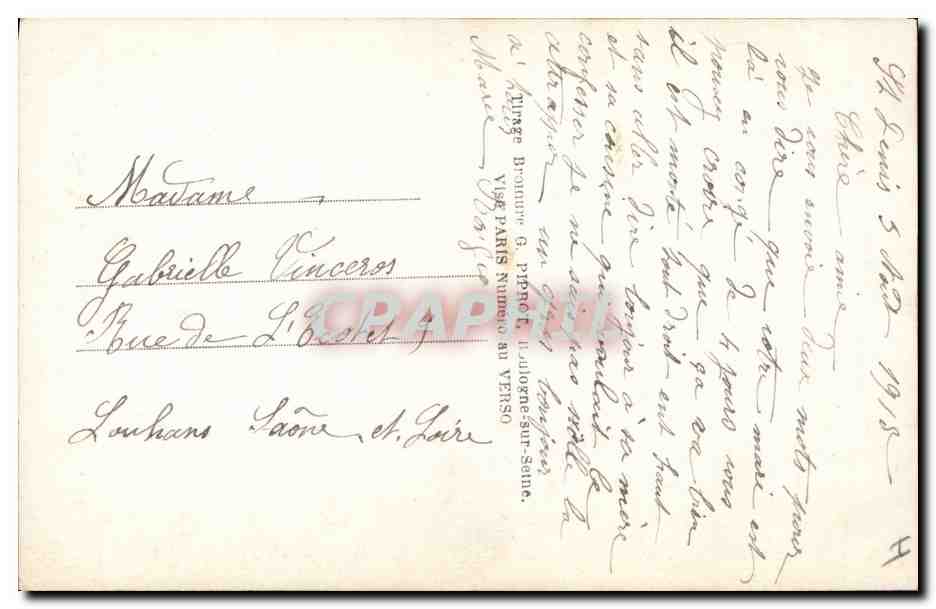 St Denis 5 Août 1918
Chère amie
Je vous envoie deux mots pour
vous dire que votre mari est
là en congé de 4 jours vous
pouvez croire que ça va bien
il est monté tout droit en haut
sans aller dire bonjour à sa mère
et sa cousine qui voulait le
confesser je ne sais pas si elle la
attrapper un qui toujours
a
Marie
Madame
Gabrielle Vinceros
Rue de L'
Louhans Saône et Loire
Tirage Bromure G. PIPROT, Boulogne-sur-Seine.
Visé PARIS Numéro au VERSO
CPAPHIL
H